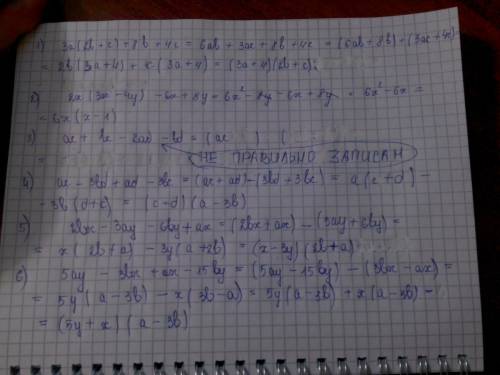 1) 3a(2b+c)+8b+4c = 6ab + 3ac + 8b + 4c = (6ab+8b)+(3ac+4c)=
= 2b(3a+4) + c(3a+4) = (3a+4)(2b+c);
2) 2x(3x-4y) -6x+8y = 6x²-8y-6x+8y = 6x²-6x =
= 6x(x-1)
3) ac + bc - 2ad - bd = (ac ) (
= НЕ ПРАВИЛЬНО ЗАПИСАН
4) ac - 3bd + ad - 3bc = (ac+ad)-(3bd+3bc) = a(c+d) -
- 3b(d+c) = (c-d)(a-3b)
5) 2bx - 3ay - 6by + ax = (2bx+ax) - (3ay+6by) =
= x(2b+a) - 3y(a+2b) = (x-3y)(2b+a)
6) 5ay - 3bx + ax - 15by = (5ay-15by) - (3bx-ax) =
= 5y(a-3b) - x(3b-a) = 5y(a-3b) + x(a-3b) -
= (5y+x)(a-3b)